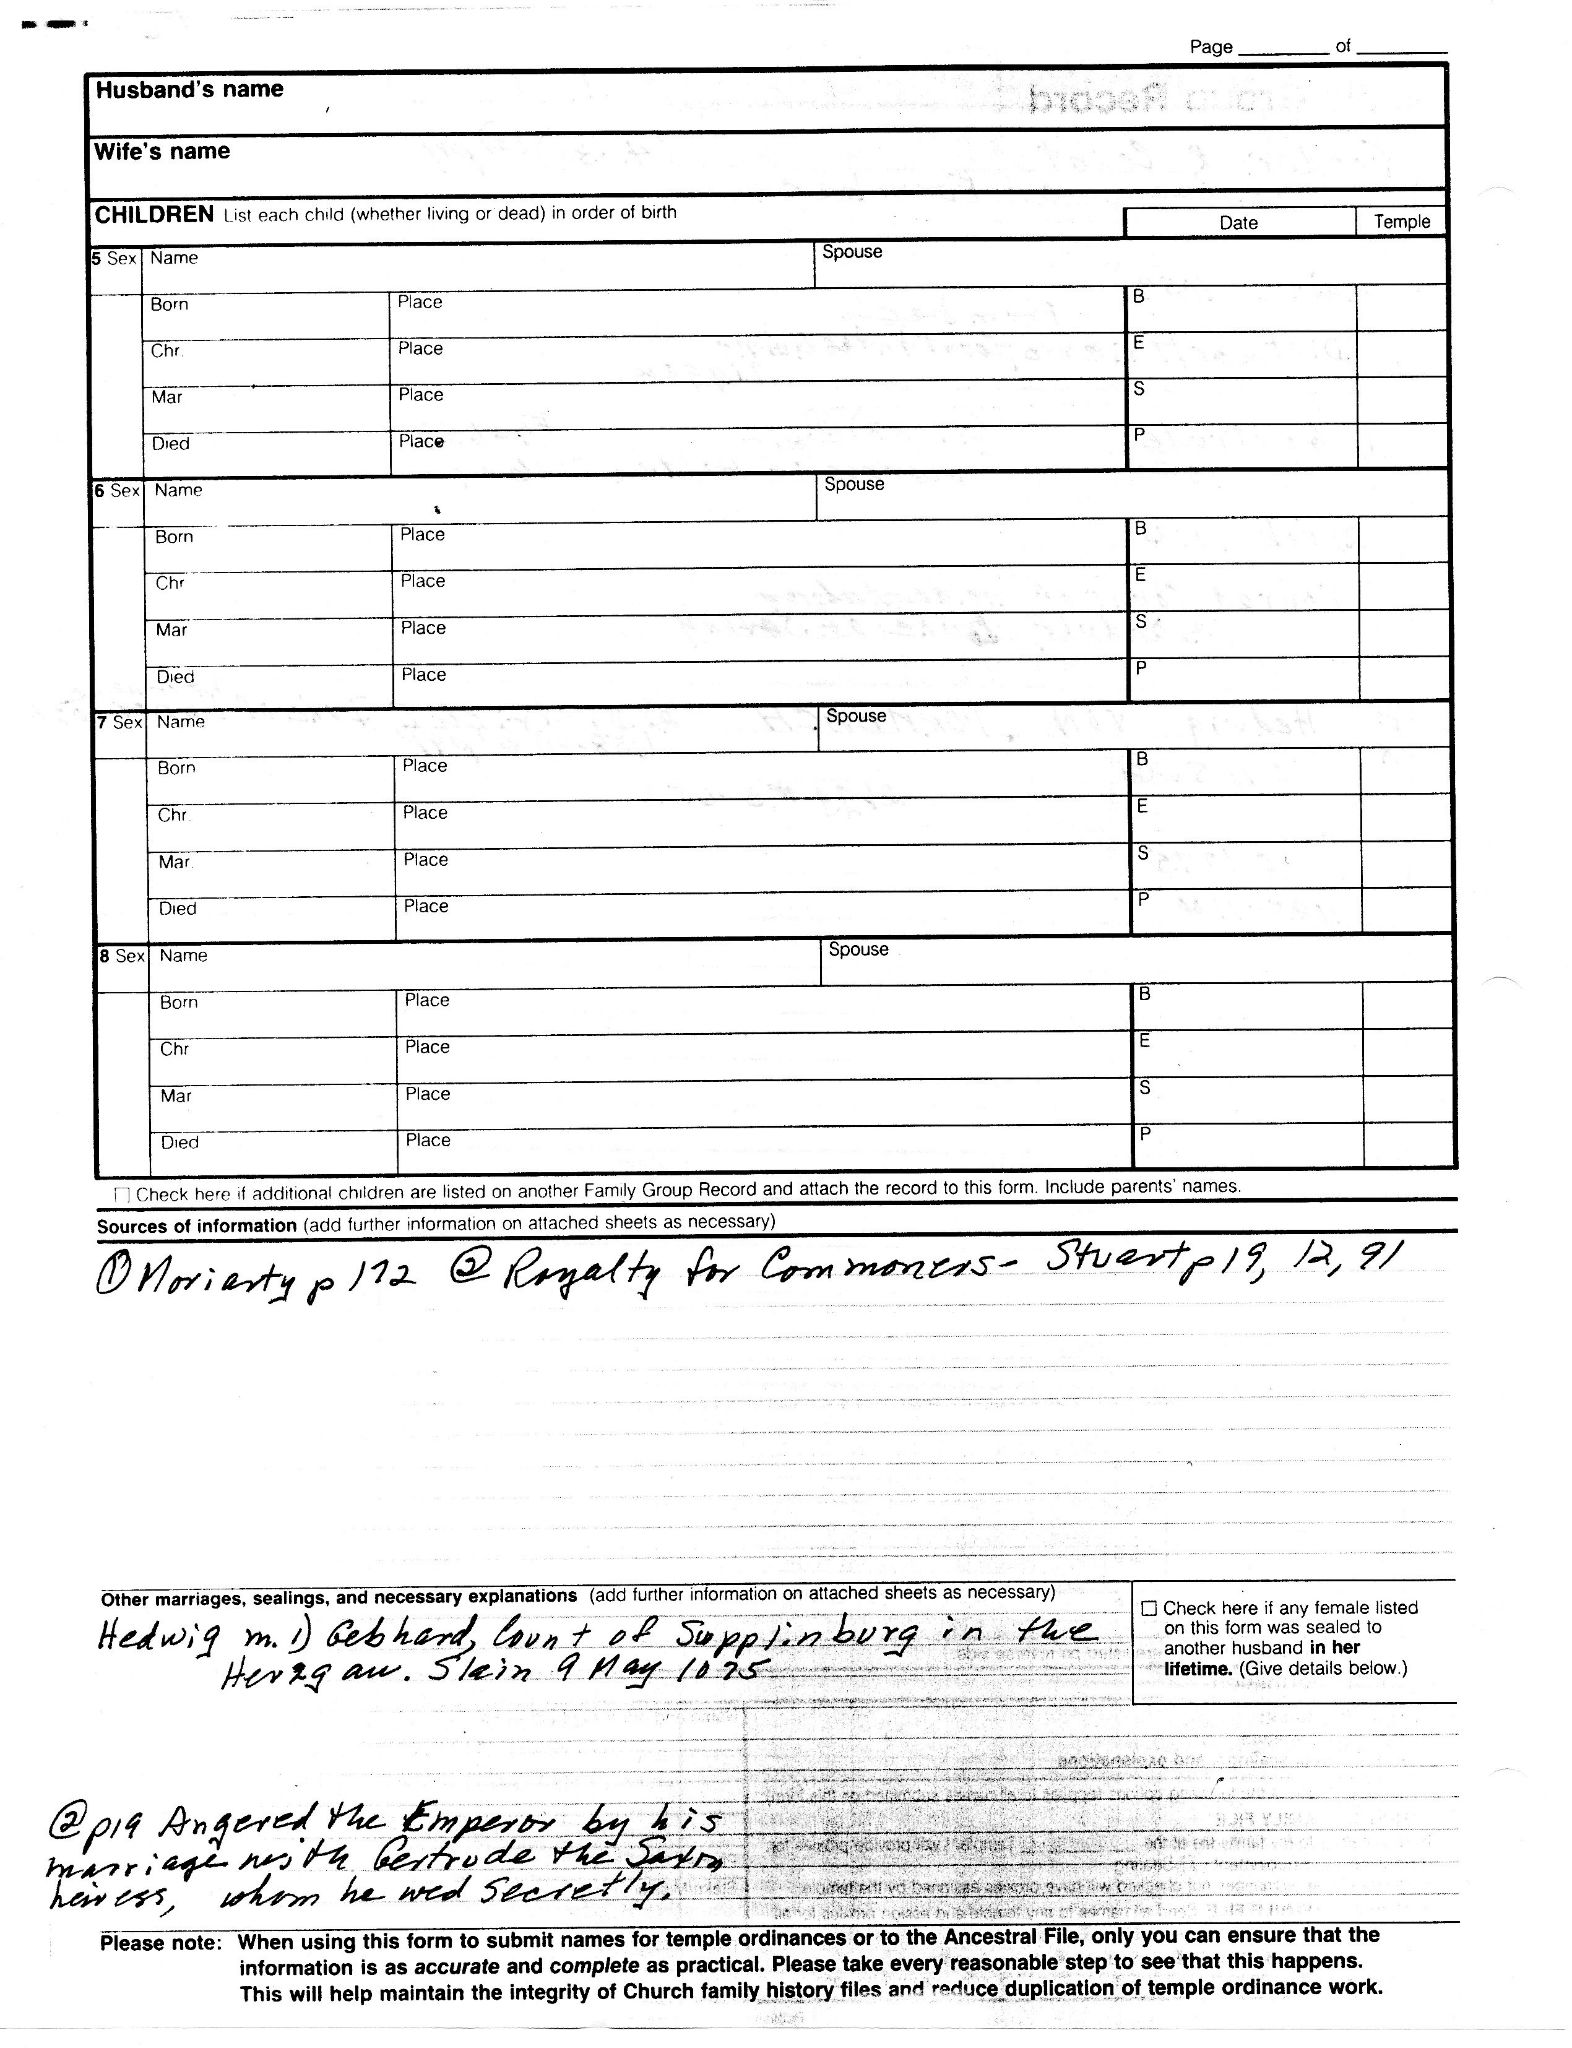 Page ________ of ________
Husband's name
Wife's name
CHILDREN List each child (whether living or dead) in order of birth
Date Temple
5 Sex Name Spouse
Born Place B
Chr. Place E
Mar Place S
Died Place P
6 Sex Name Spouse
Born Place B
Chr Place E
Mar Place S
Died Place P
7 Sex Name Spouse
Born Place B
Chr. Place E
Mar. Place S
Died Place P
8 Sex Name Spouse
Born Place B
Chr Place E
Mar Place S
Died Place P
☐ Check here if additional children are listed on another Family Group Record and attach the record to this form. Include parents' names.
Sources of information (add further information on attached sheets as necessary)
① Moriarty p 172 ② Royalty for Commoners - Stuart p 19, 12, 91
Other marriages, sealings, and necessary explanations (add further information on attached sheets as necessary)
Hedwig m. 1) Gebhard, Count of Supplinburg in the
Herzgau. Slain 9 May 1075
☐ Check here if any female listed
on this form was sealed to
another husband in her
lifetime. (Give details below.)
② p19 Angered the Emperor by his
marriage with Gertrude the Saxon
heiress, whom he wed secretly.
Please note: When using this form to submit names for temple ordinances or to the Ancestral File, only you can ensure that the
information is as accurate and complete as practical. Please take every reasonable step to see that this happens.
This will help maintain the integrity of Church family history files and reduce duplication of temple ordinance work.